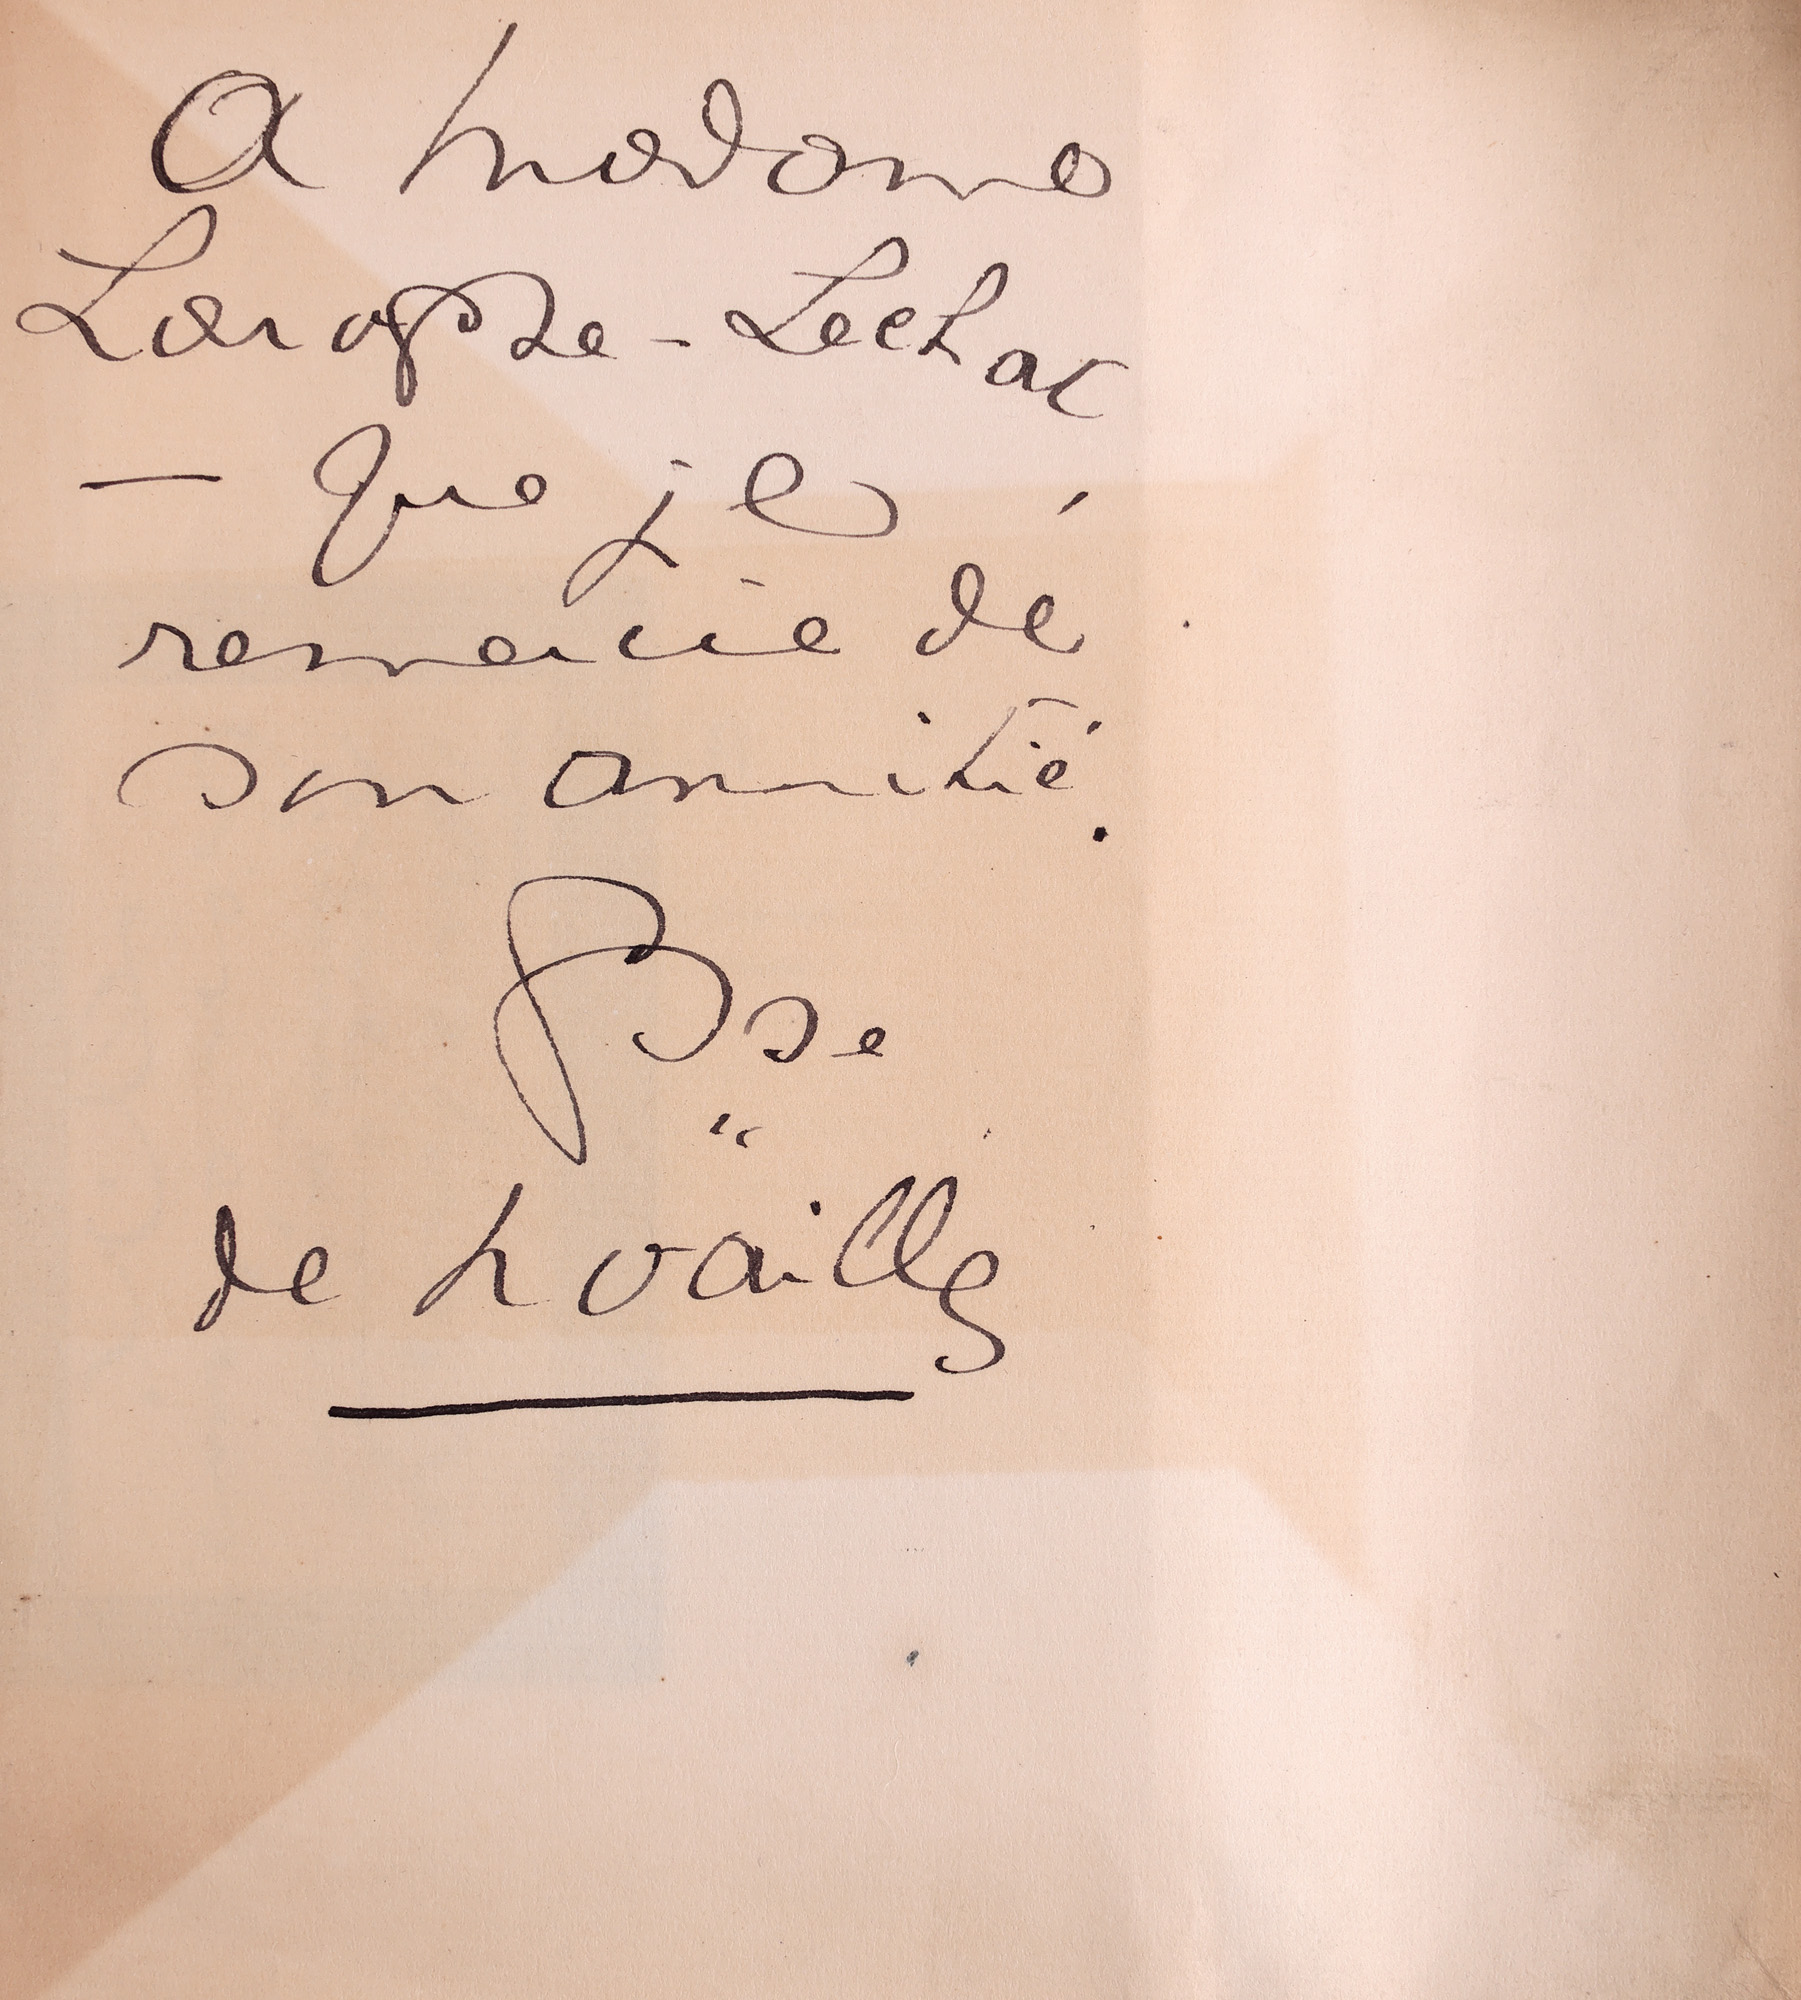 A Madame
Larapze-Lechat
— que je
remercie de
son amitié.
Bsse
de Noailles